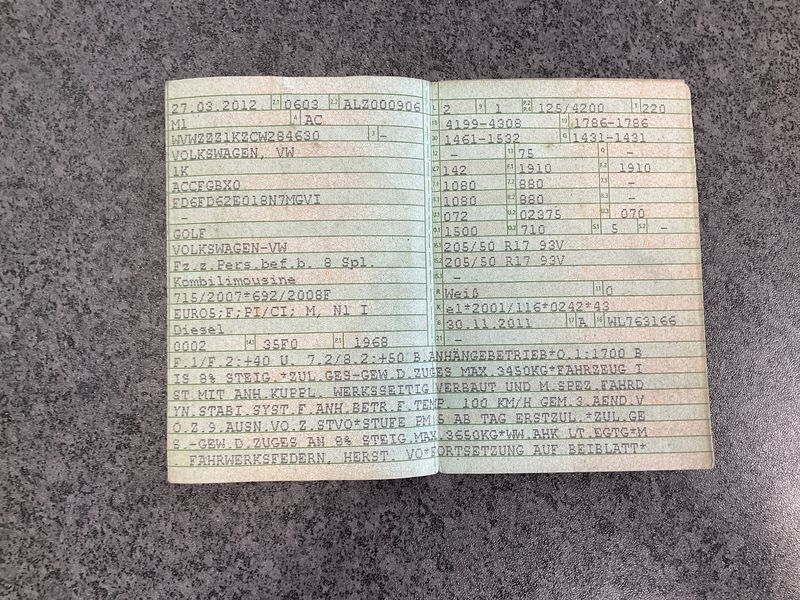 27.03.2012 2.1 0603 2.2 ALZ000906
M1 4 AC
WVWZZZ1KZCW284630 3 -
VOLKSWAGEN, VW
1K
ACCFGBX0
FD6FD62E018N7MGVI
-
GOLF
VOLKSWAGEN-VW
Fz.z.Pers.bef.b. 8 Spl.
Kombilimousine
715/2007*692/2008F
EURO5;F;PI/CI; M, N1 I
Diesel
0002 14.1 35F0 2.1 1968
L 2 9 1 P.2 P.4 125/4200 T 220
18 4199-4308 19 1786-1786
20 1461-1532 G 1431-1431
12 - 13 75 Q -
V.7 142 F.1 1910 F.2 1910
7.1 1080 7.2 880 7.3 -
8.1 1080 8.2 880 8.3 -
U.1 072 U.2 02375 U.3 070
O.1 1500 O.2 710 S.1 5 S.2 -
15.1 205/50 R17 93V
15.2 205/50 R17 93V
15.3 -
R Weiß 11 0
K e1*2001/116*0242*43
6 30.11.2011 17 A 16 WL763166
21 -
F.1/F.2:+40 U. 7.2/8.2:+50 B.ANHÄNGEBETRIEB*O.1:1700 B
IS 8% STEIG.*ZUL.GES-GEW.D.ZUGES MAX.3450KG*FAHRZEUG I
ST MIT ANH.KUPPL. WERKSSEITIG VERBAUT UND M.SPEZ.FAHRD
YN.STABI.SYST.F.ANH.BETR.F.TEMP. 100 KM/H GEM.3.AEND.V
O.Z.9.AUSN.VO.Z.STVO*STUFE PM 5 AB TAG ERSTZUL.*ZUL.GE
S.-GEW.D.ZUGES AN 8% STEIG.MAX.3650KG*WW.AHK LT.EGTG*M
FAHRWERKSFEDERN, HERST. VO*FORTSETZUNG AUF BEIBLATT*